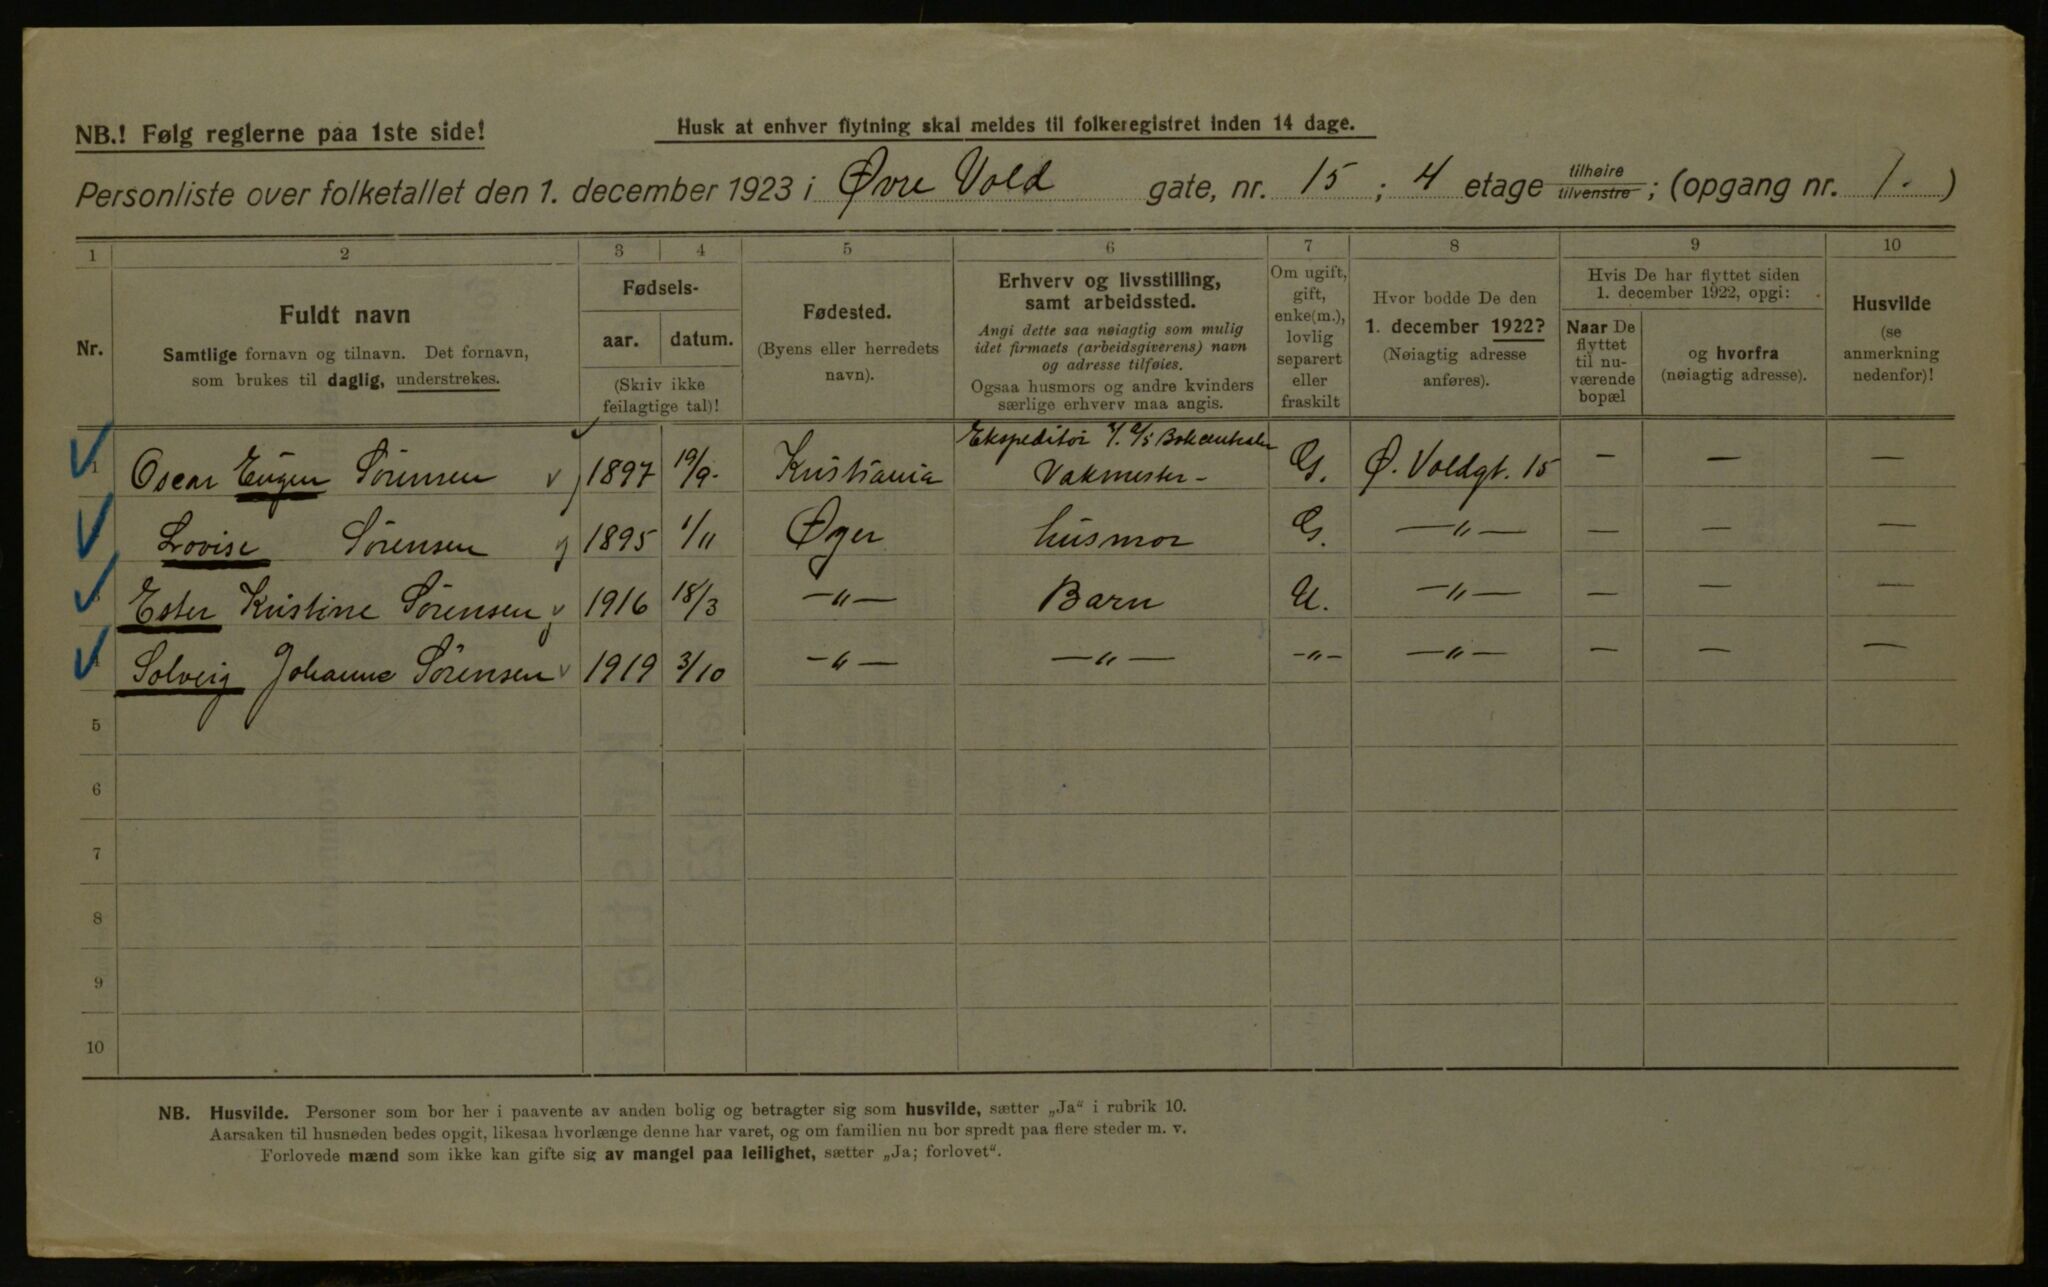 NB.! Følg reglerne paa 1ste side!
Husk at enhver flytning skal meldes til folkeregistret inden 14 dage.
Personliste over folketallet den 1. december 1923 i Øvre Vold gate, nr. 15 ; 4 etage tilhøire tilvenstre ; (opgang nr. 1. )
1 2 3 4 5 6 7 8 9 10
Nr.
Fuldt navn
Samtlige fornavn og tilnavn. Det fornavn,
som brukes til daglig, understrekes.
Fødsels-
aar. datum.
(Skriv ikke
feilagtige tal)!
Fødested.
(Byens eller herredets
navn).
Erhverv og livsstilling,
samt arbeidssted.
Angi dette saa nøiagtig som mulig
idet firmaets (arbeidsgiverens) navn
og adresse tilføies.
Ogsaa husmors og andre kvinders
særlige erhverv maa angis.
Om ugift,
gift,
enke(m.),
lovlig
separert
eller
fraskilt
Hvor bodde De den
1. december 1922?
(Nøiagtig adresse
anføres).
Hvis De har flyttet siden
1. december 1922, opgi:
Naar De
flyttet
til nu-
værende
bopæl
og hvorfra
(nøiagtig adresse).
Husvilde
(se
anmerkning
nedenfor)!
Ekspeditør
1 Oscar Eugen Sørensen v 1897 19/9. Kristiania Vakmester - G. Ø. Voldgt. 15 — — —
Lovise Sørensen 1895 1/11 Øyer husmor G. —„— — — —
Ester Kristine Sørensen v 1916 18/3 —„— Barn U. —„— — — —
4 Solveig Johanne Sørensen v 1919 3/10 —„— —„— —„— —„— — — —
5
6
7
8
9
10
NB. Husvilde. Personer som bor her i paavente av anden bolig og betragter sig som husvilde, sætter „Ja“ i rubrik 10.
Aarsaken til husnøden bedes opgit, likesaa hvorlænge denne har varet, og om familien nu bor spredt paa flere steder m. v.
Forlovede mænd som ikke kan gifte sig av mangel paa leilighet, sætter „Ja; forlovet“.